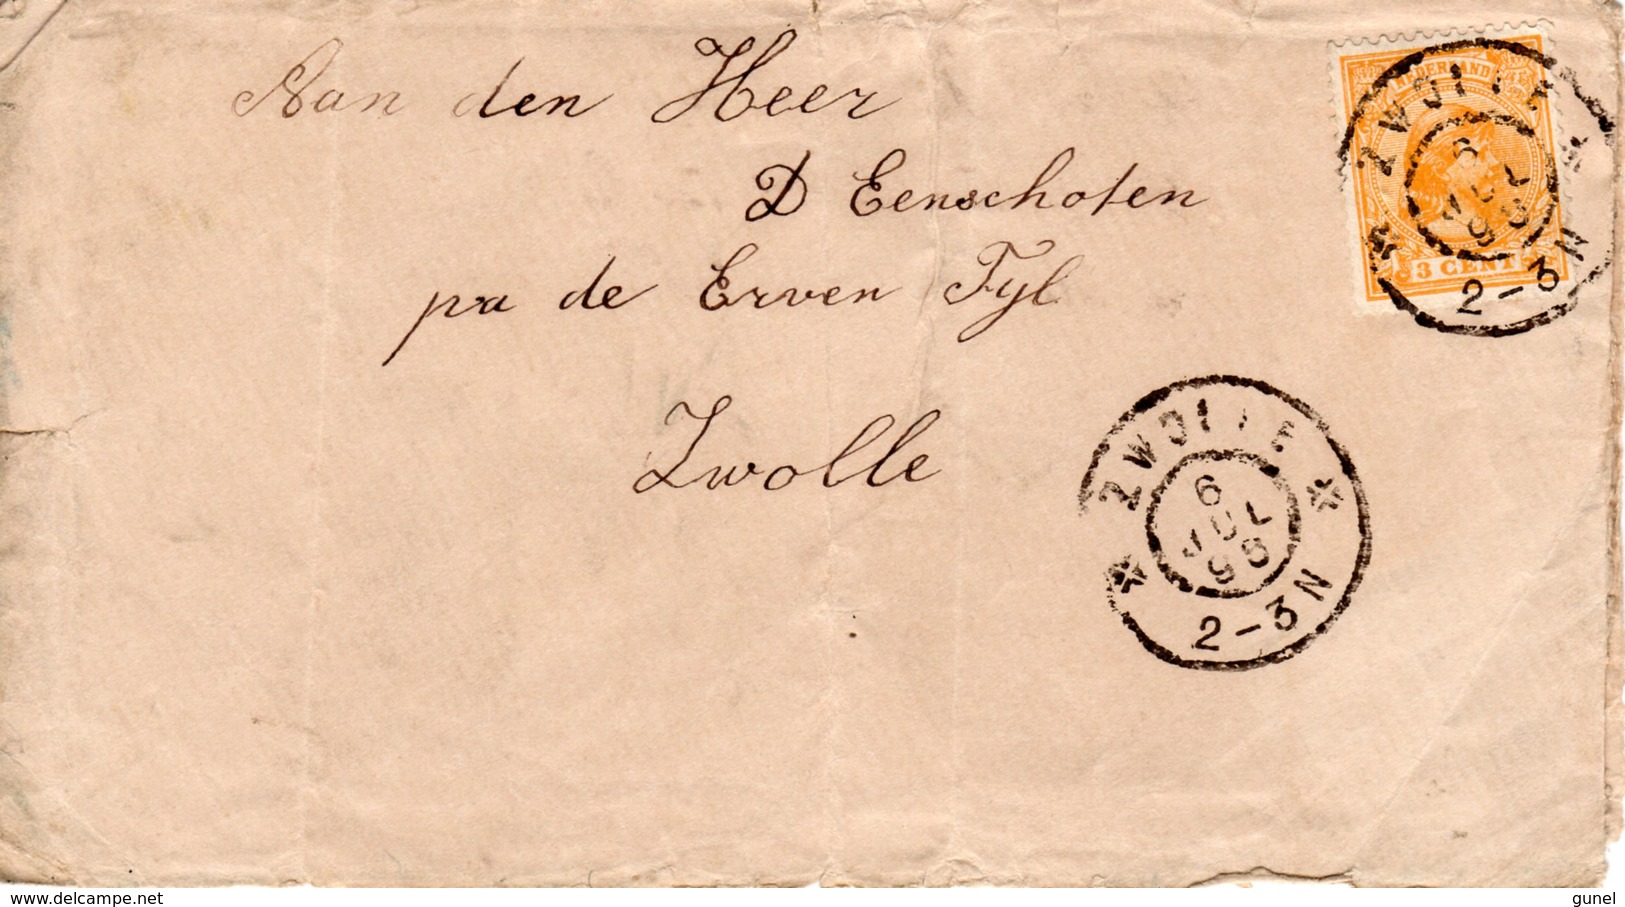 Aan den Heer
D Eenschoten
pa de Erven Tyl
Zwolle
NEDERLAND
3 CENT
ZWOLLE
6
JUL
95
2-3N
ZWOLLE
6
JUL
95
2-3N
delcampe.net
gunel